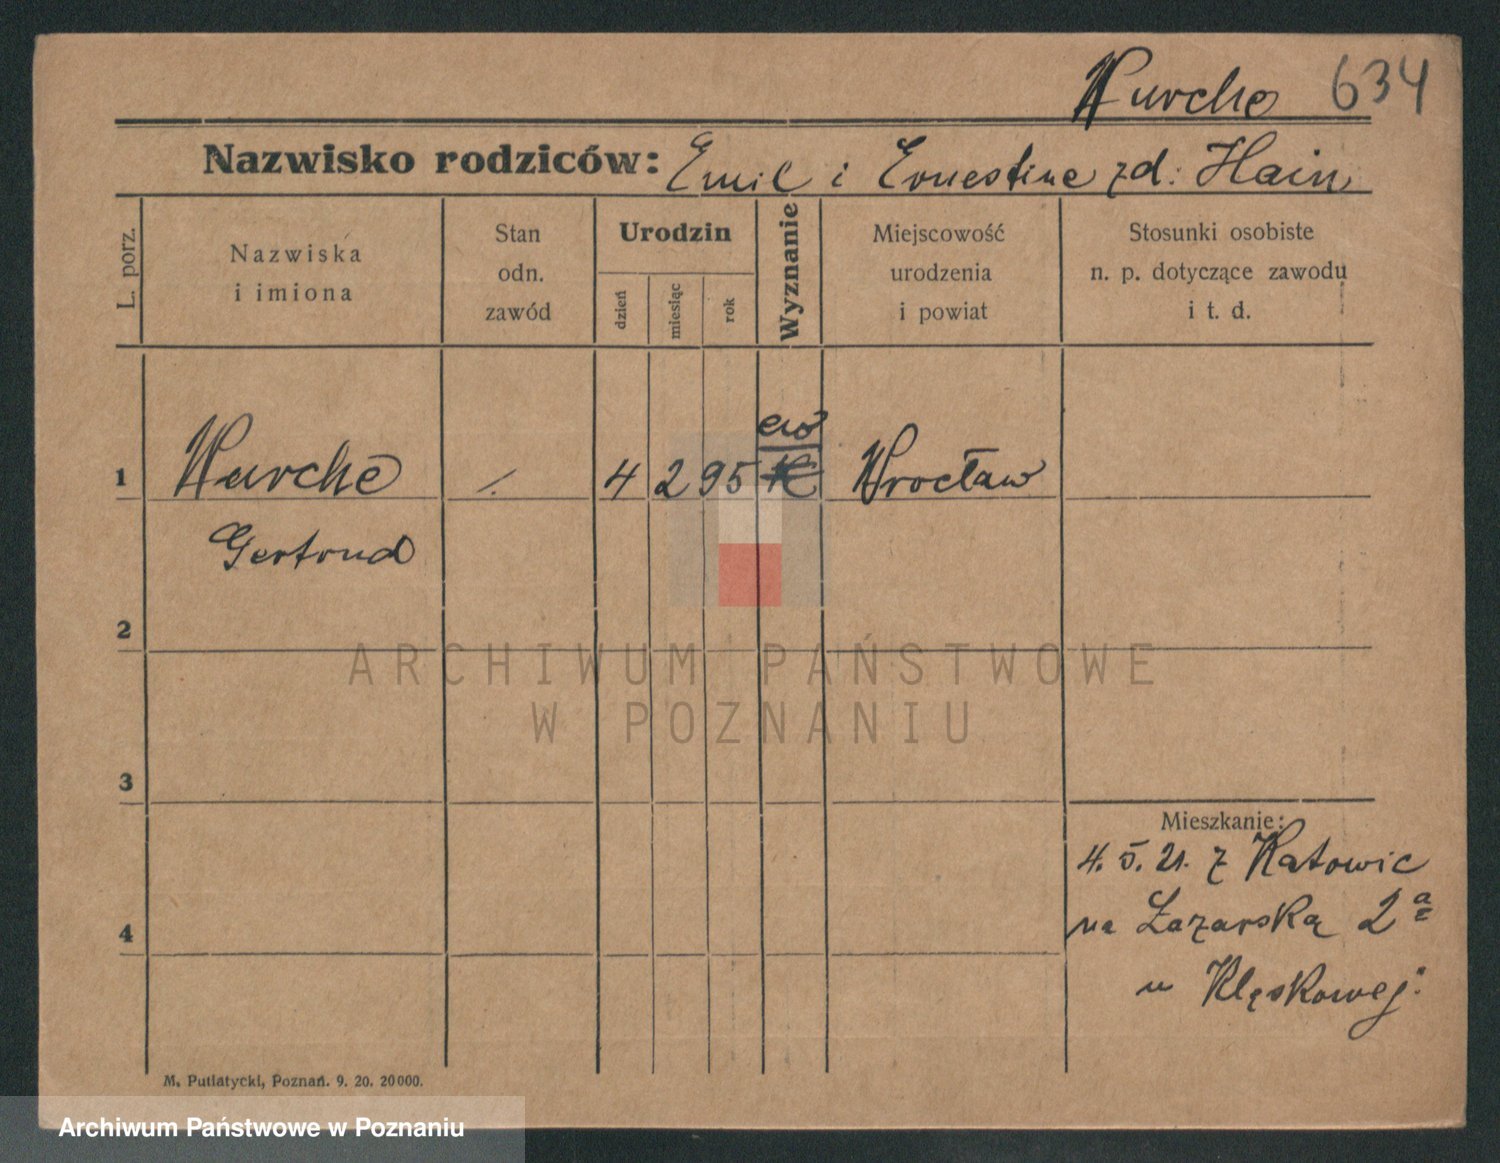 Wurche 634
Nazwisko rodziców: Emil i Ernestine zd: Hain
L. porz.
Nazwiska
i imiona
Stan
odn.
zawód
Urodzin
dzień
miesiąc
rok
Wyznanie
Miejscowość
urodzenia
i powiat
Stosunki osobiste
n. p. dotyczące zawodu
i t. d.
ew
1 Wurche 4 2 95 K Wrocław
Gertrud
2
3
4
Mieszkanie:
4. 5. 21. z Katowic
na Łazarską 2a
u Klęskowej.
M. Putiatycki, Poznań. 9. 20. 20000.
ARCHIWUM PAŃSTWOWE
W POZNANIU
Archiwum Państwowe w Poznaniu